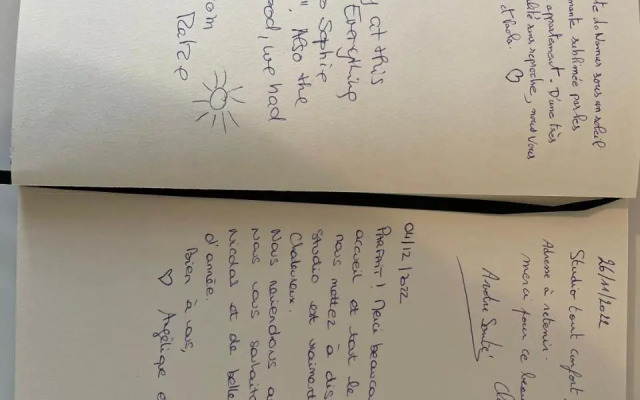 te de Namur sous un soleil
mante sublimée par les
appartement. D'une très
lité sans reproche, nous vous
et Paola. ♡
d at this
Everything
o Sophie
", Also the
ood, we had
om
26/11/2022
Studio tout confort,
Adresse à retenir.
merci pour ce beau
04/12/2022
Parfait! Merci beaucou
accueil et tout le
nous mettez à dis
studio est vraiment
chaleureux.
Nous reviendrons a
Nous vous souhaito
Nicolas et de belle
d'année.
Bien à vous,
♡ Angélique e